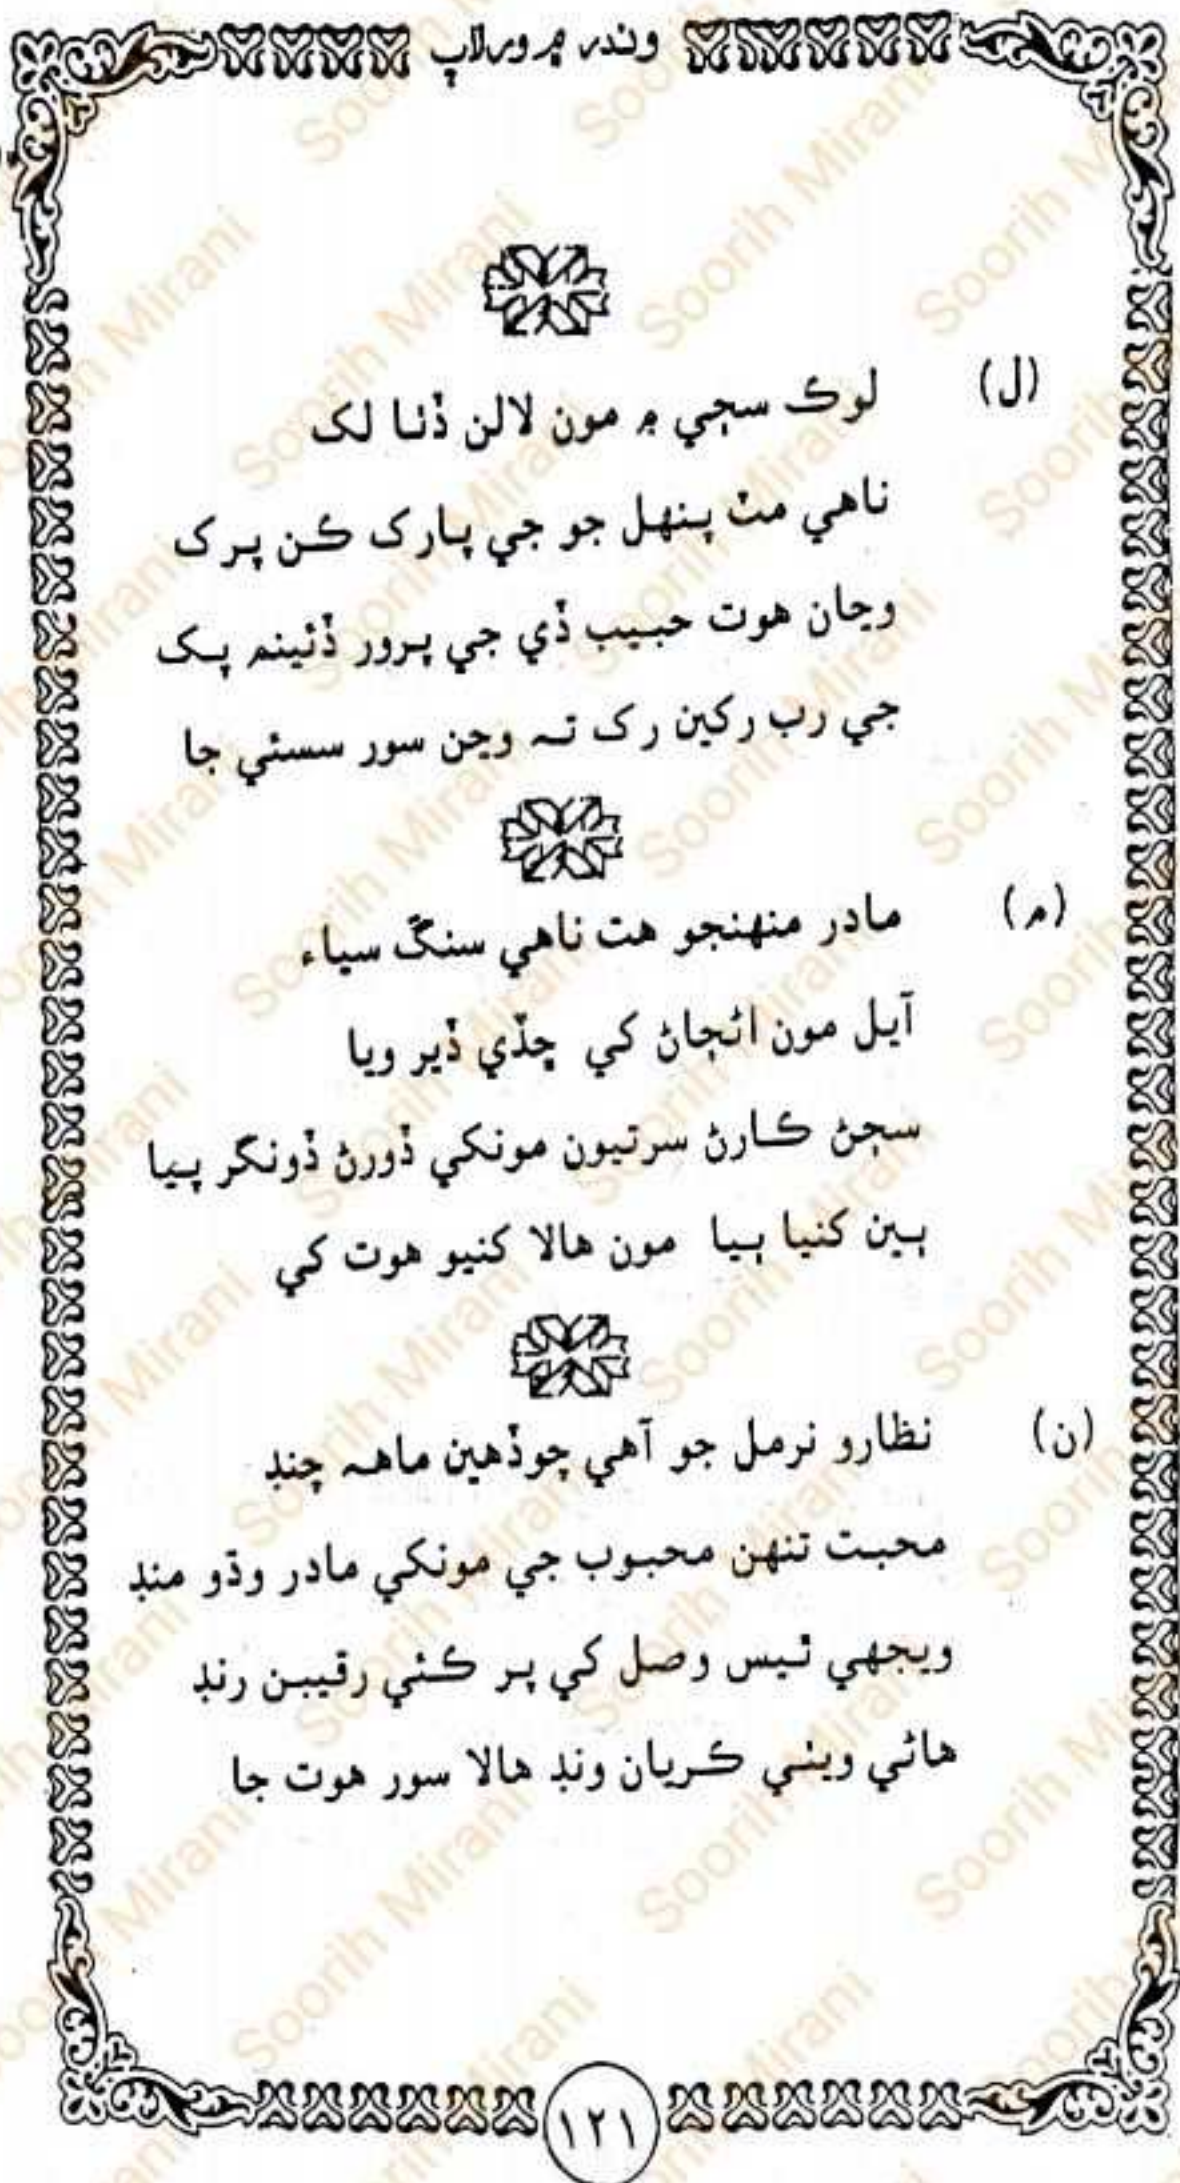 وندر ۾ ورلاپ
(ل) لوڪ سڄي ۾ مون لالن ڏٺا لک
ناهي مٽ پنهل جو جي پارک ڪن پرک
وڃان هوت حبيب ڏي جي پرور ڏئينم پک
جي رب رکين رک تہ وڃن سور سسئي جا
(م) مادر منهنجو هت ناهي سنڱ سياء
آيل مون اڻڄاڻ کي ڇڏي ڏير ويا
سڄڻ ڪارڻ سرتيون مونکي ڏورڻ ڏونگر پيا
ٻين کنيا ٻيا مون هالا کنيو هوت کي
(ن) نظارو نرمل جو آهي چوڏهين ماهہ چنڊ
محبت تنهن محبوب جي مونکي مادر وڌو منڊ
ويجهي ٿيس وصل کي پر ڪئي رقيبن رنڊ
هاڻي ويٺي ڪريان ونڊ هالا سور هوت جا
١٢١
Soorih Mirani